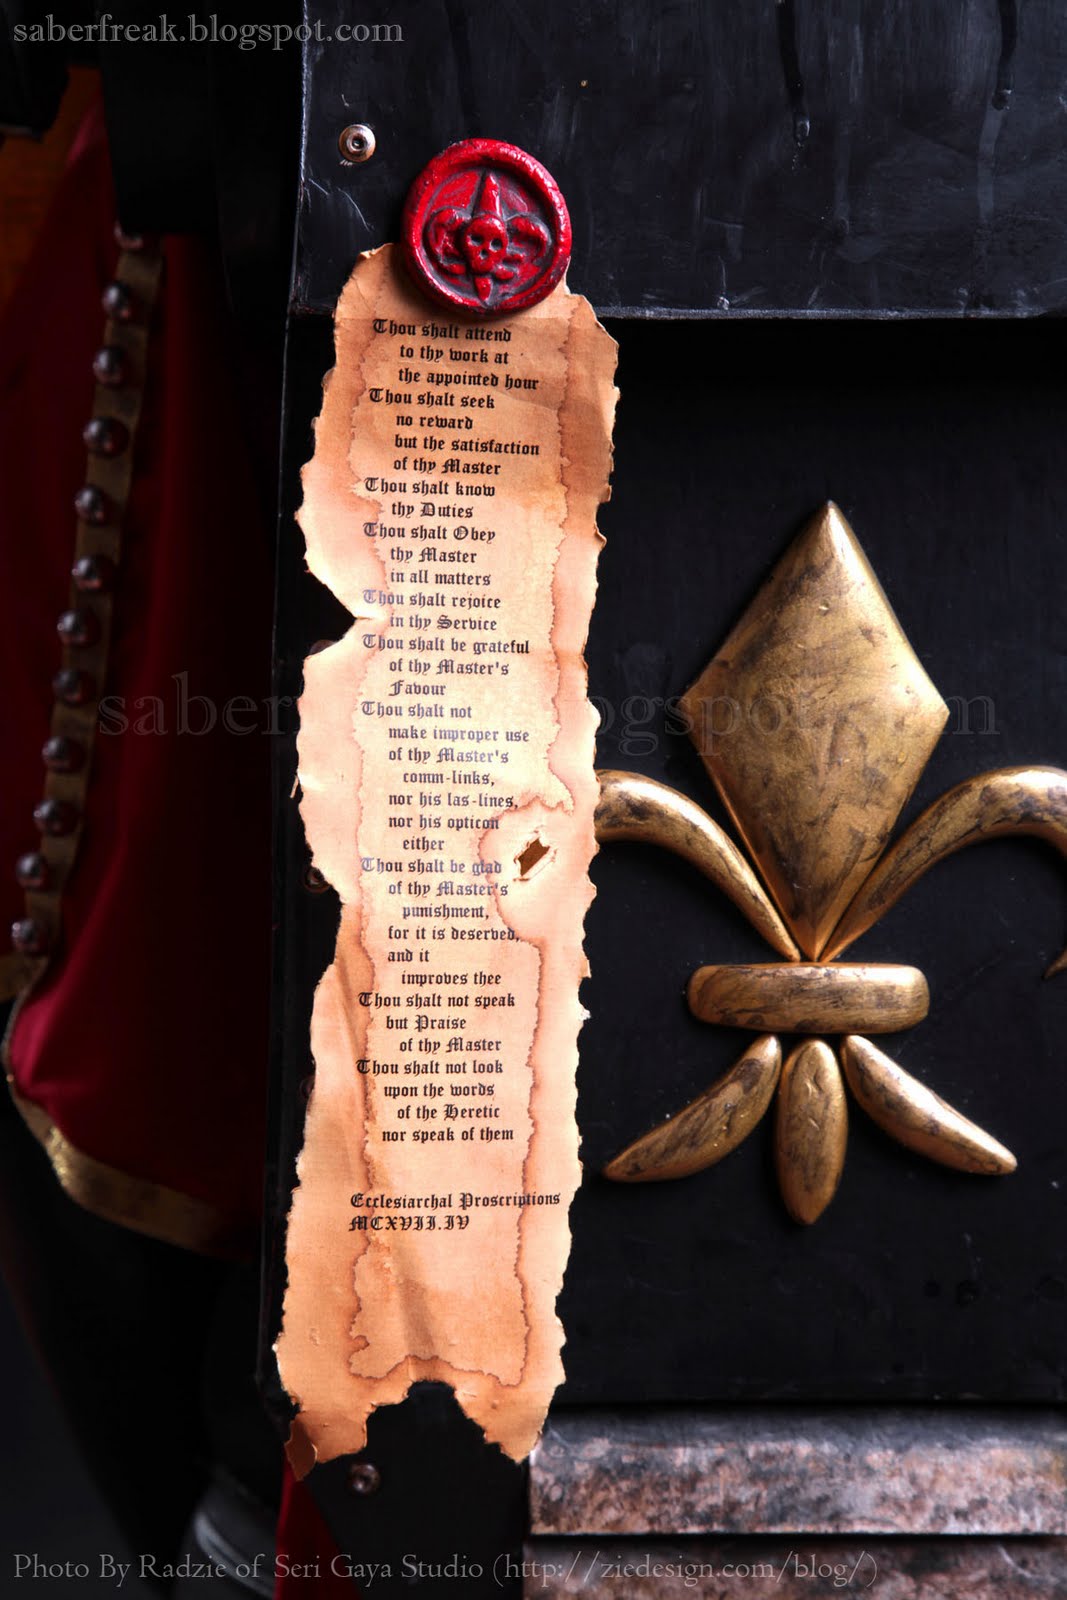 saberfreak.blogspot.com
Thou shalt attend
to thy work at
the appointed hour
Thou shalt seek
no reward
but the satisfaction
of thy Master
Thou shalt know
thy Duties
Thou shalt Obey
thy Master
in all matters
Thou shalt rejoice
in thy Service
Thou shalt be grateful
of thy Master's
Favour
Thou shalt not
make improper use
of thy Master's
comm-links,
nor his las-lines,
nor his opticon
either
Thou shalt be glad
of thy Master's
punishment,
for it is deserved,
and it
improves thee
Thou shalt not speak
but Praise
of thy Master
Thou shalt not look
upon the words
of the Heretic
nor speak of them
Ecclesiarchal Proscriptions
MCXVII.IV
Photo By Radzie of Seri Gaya Studio (http://ziedesign.com/blog/)